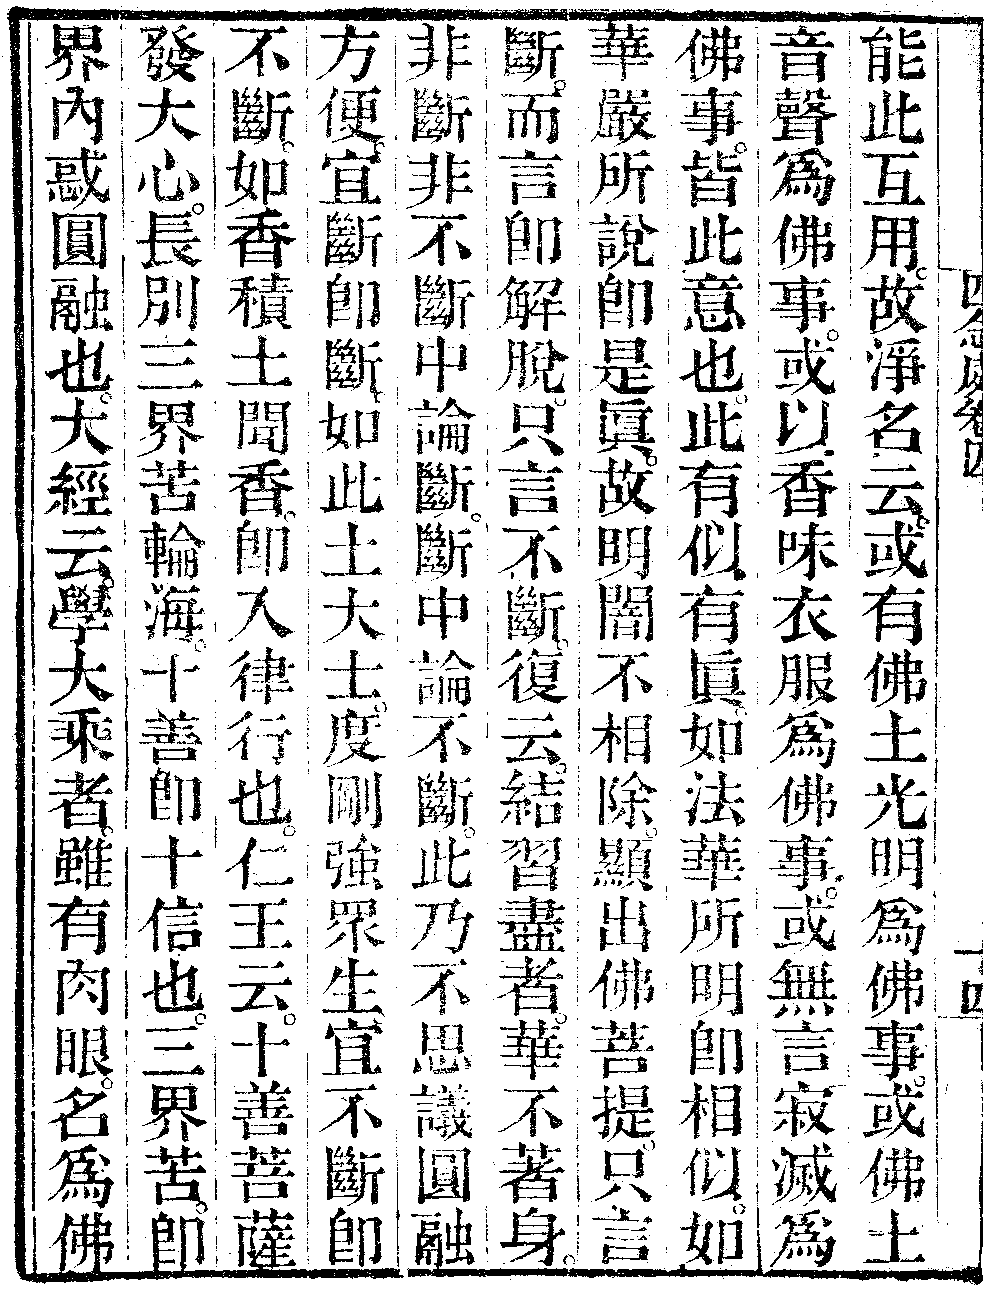 四念處卷四
十四
能此互用。故淨名云。或有佛土光明爲佛事。或佛土
音聲爲佛事。或以香味衣服爲佛事。或無言寂滅爲
佛事。皆此意也。此有似有眞。如法華所明卽相似。如
華嚴所說卽是眞。故明闇不相除。顯出佛菩提。只言
斷。而言卽解脫。只言不斷。復云。結習盡者。華不著身。
非斷非不斷中論斷。斷中論不斷。此乃不思議圓融
方便。宜斷卽斷。如此土大士。度剛強眾生宜不斷卽
不斷。如香積土聞香。卽入律行也。仁王云。十善菩薩
發大心。長別三界苦輪海。十善卽十信也。三界苦。卽
界內惑圓融也。大經云。學大乘者。雖有肉眼。名爲佛